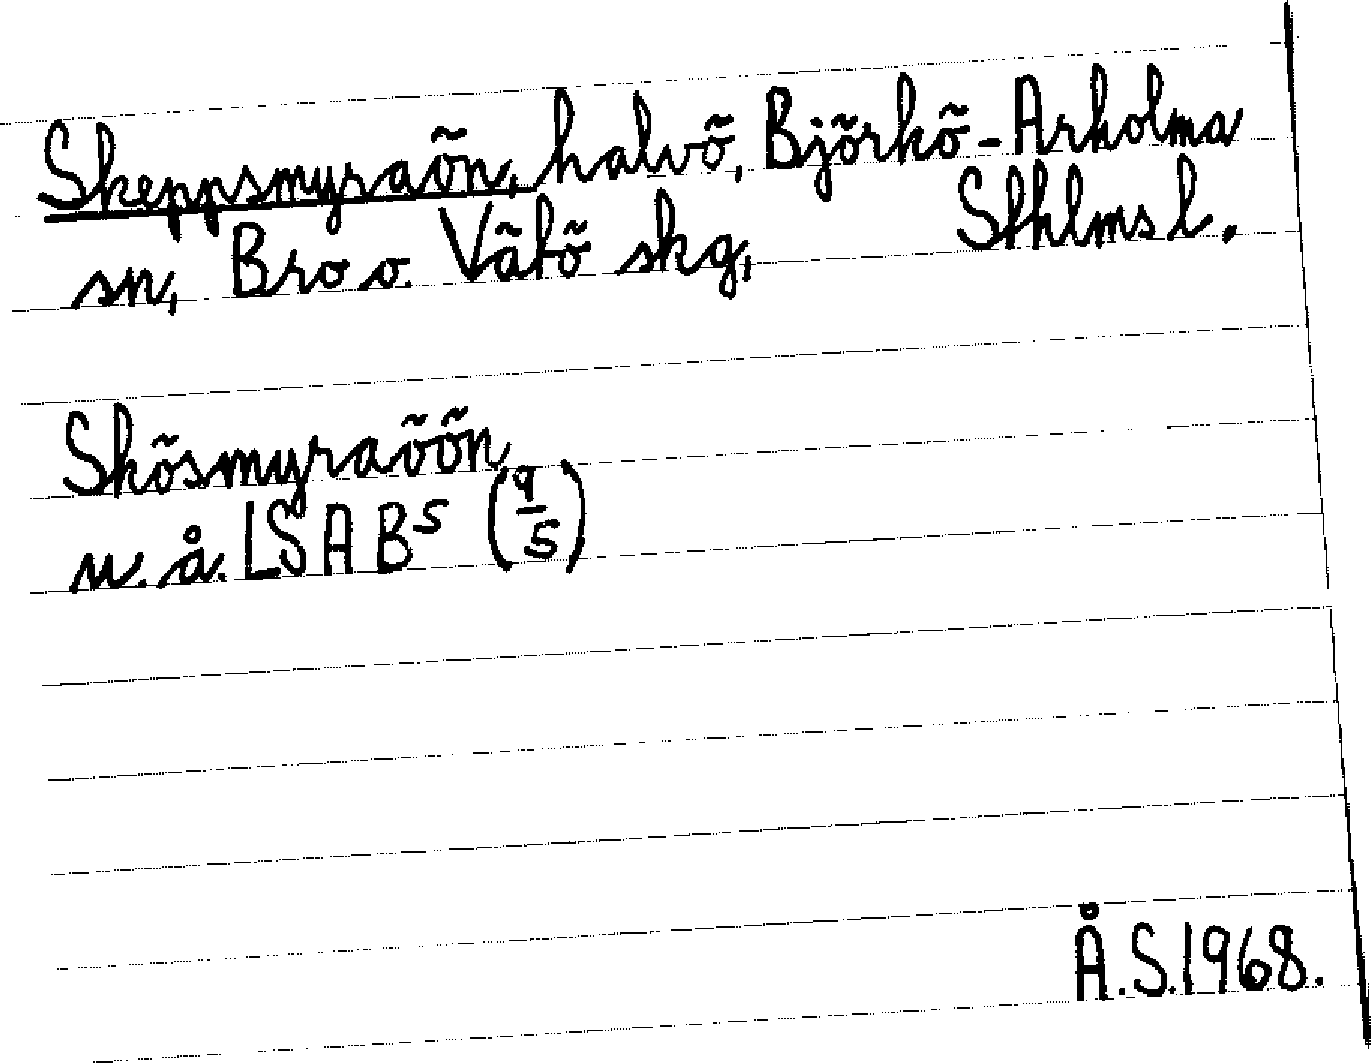 Skeppsmyraön, halvö, Björkö-Arholma
sn, Bro o. Vätö skg, Sthlms l.
Skösmyraöön
u. å. LSA B5 (9/5)
Å.S.1968.